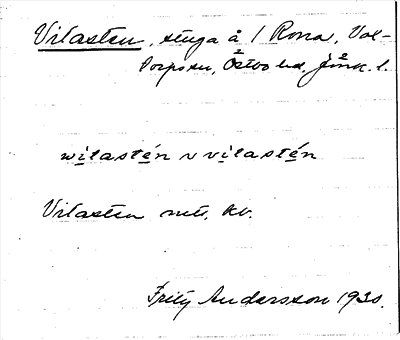 Vilasten, stuga å 1 Rona, Val-
dorps sn, Östbo hd. Jönk. l.
wilastén v vilastén
Vilasten mt. kv.
Fritz Andersson 1930.